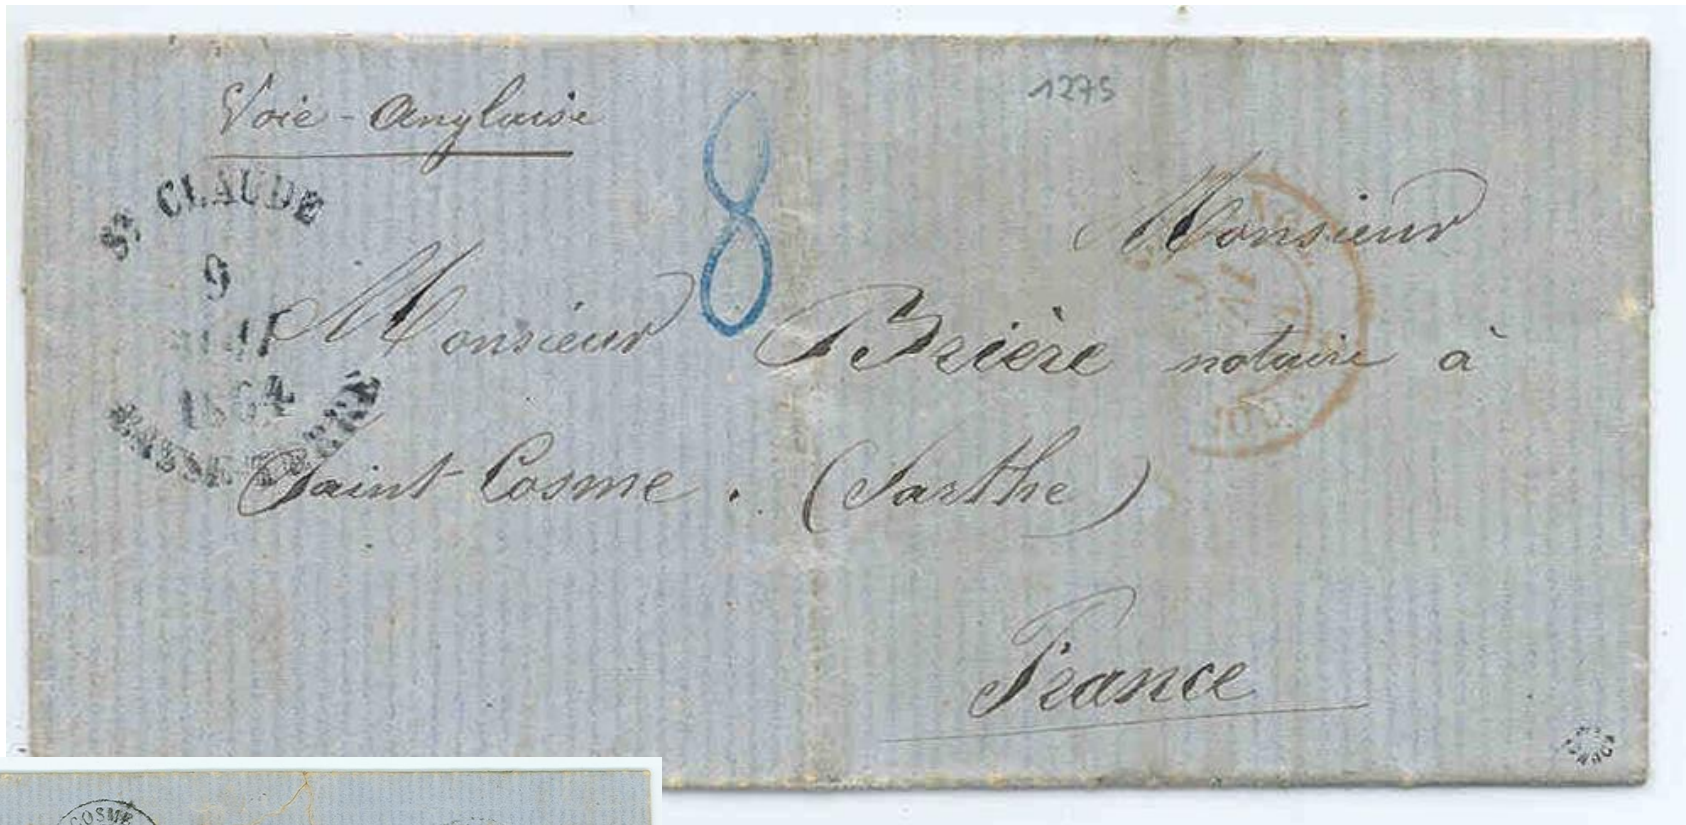 Voie-Anglaise
8
1275
St CLAUDE
9
1864
BASSE-TERRE
Monsieur
Monsieur Brière notaire à
Saint Cosme. (Sarthe)
France
COSME